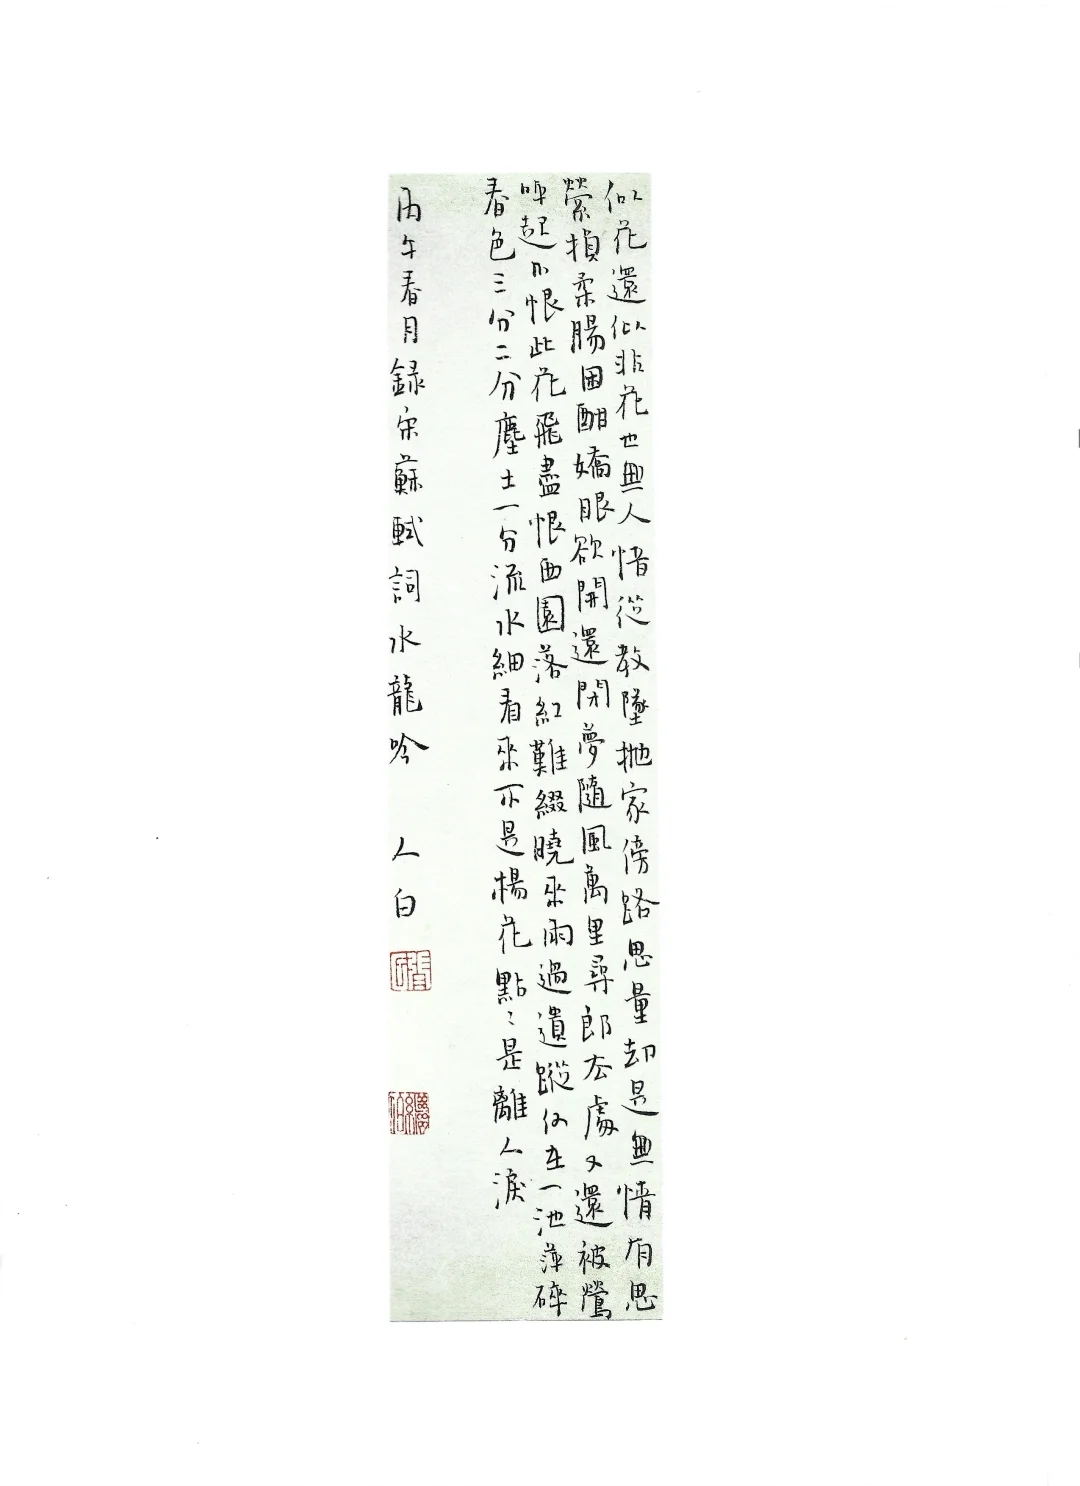 似花還似非花也無人惜從教墜拋家傍路思量却是無情有思
縈損柔腸困酣嬌眼欲開還閉夢隨風萬里尋郎去處又還被鶯
呼起不恨此花飛盡恨西園落紅難綴曉來雨過遺蹤何在一池萍碎
春色三分二分塵土一分流水細看來不是楊花點〻是離人淚
丙午春月録宋蘇軾詞水龍吟 人白